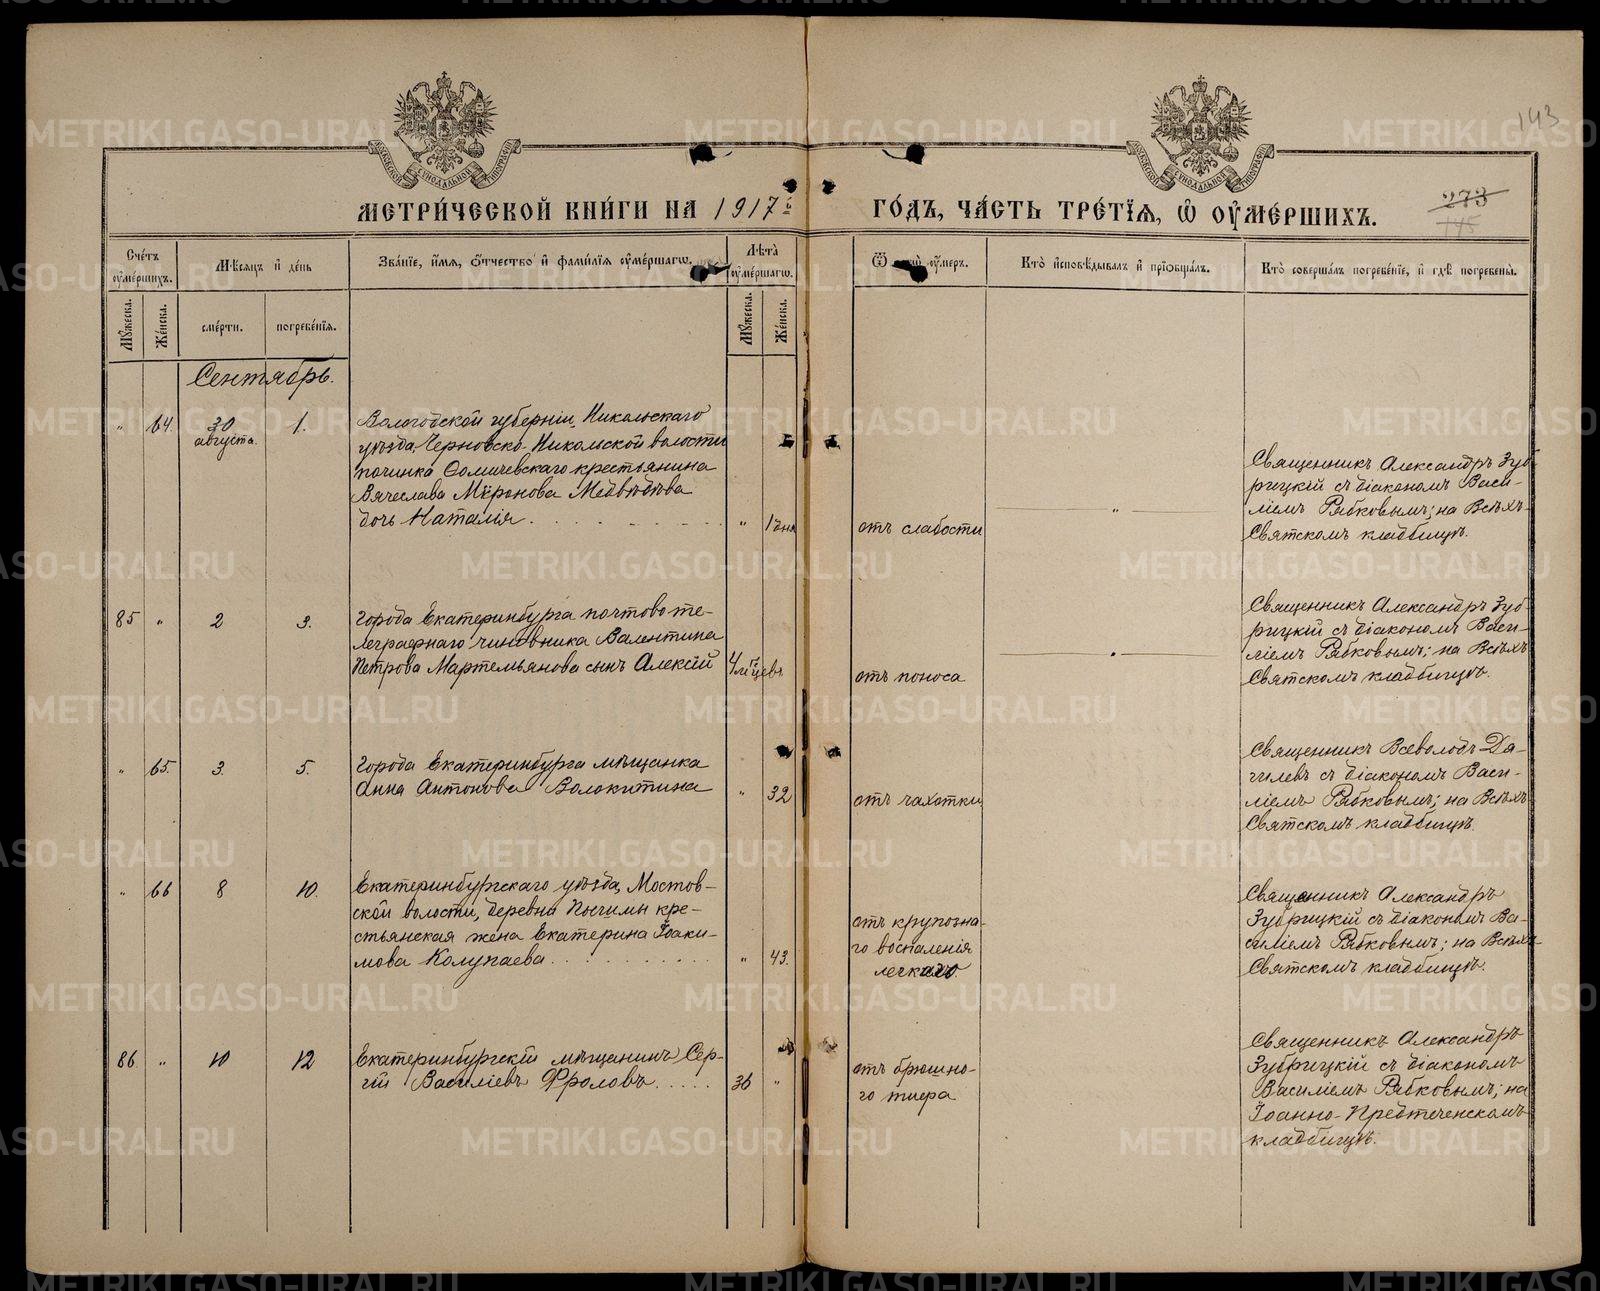 143
МЕТРИ́ЧЕСКОЙ КНИ́ГИ НА 1917й
ГО́ДЪ, ЧА́СТЬ ТРЕ́ТІѦ, Ѡ҆ ОУ҆МЕ́РШИХЪ.
273
145
Сче́тъ оу҆ме́ршихъ.
Мѣсѧцъ и҆ де́нь
Зва́ніе, и҆́мѧ, ѻ҆́тчество и҆ фами́лїѧ оу҆ме́ршагѡ.
Лѣ́та оу҆ме́ршагѡ.
оу҆́меръ.
Кто̀ и҆сповѣ́дывалъ и҆ прїѡбща́лъ.
Кто̀ соверша́лъ погребе́нїе, и҆ гдѣ̀ погребены̀.
Мꙋ́жеска.
Же́нска.
сме́рти.
погребе́нїѧ.
Мꙋ́жеска.
Же́нска.
Сентябрь.
„ 64. 30 августа. 1.
Вологодской губерніи, Никольскаго
уѣзда, Черновско-Никольской волости
починка Ѳомичевскаго крестьянина
Вячеслава Мѵронова Медвѣдева
дочь Наталія . . . . . . . . „ 1 дня
отъ слабости
„
Священникъ Александръ Зуб-
рицкій съ діакономъ Васи-
ліемъ Рябковымъ; на Всѣхъ-
Святскомъ кладбищѣ.
85 „ 2 3.
Города Екатеринбурга почтово-те-
леграфнаго чиновника Валентина
Петрова Мартемьянова сынъ Алексій
4 мѣсяцевъ
отъ поноса
„
Священникъ Александръ Зуб-
рицкій съ діакономъ Васи-
ліемъ Рябковымъ; на Всѣхъ
Святскомъ кладбищѣ.
„ 65. 3. 5.
Города Екатеринбурга мѣщанка
Анна Антонова Волокитина „ 32
отъ чахотки
Священникъ Всеволодъ Дя-
гилевъ съ діакономъ Васи-
ліемъ Рябковымъ; на Всѣхъ-
Святскомъ кладбищѣ.
„ 66 8 10.
Екатеринбургскаго уѣзда, Мостов-
ской волости, деревни Пычимы кре-
стьянская жена Екатерина Іоаки-
мова Колупаева . . . . . . . . . „ 43.
отъ крупозна-
го воспаленія
легкаго
Священникъ Александръ
Зубрицкій съ діакономъ Ва-
силіемъ Рябковымъ; на Всѣхъ-
Святскомъ кладбищѣ.
86. „ 10 12
Екатеринбургскій мѣщанинъ Сер-
гій Василіевъ Фроловъ . . . . . 36 „
отъ брюшно-
го тифа
Священникъ Александръ
Зубрицкій съ діакономъ
Василіемъ Рябковымъ; на
Іоанно-Предтеченскомъ
кладбищѣ.
METRIKI.GASO-URAL.RU